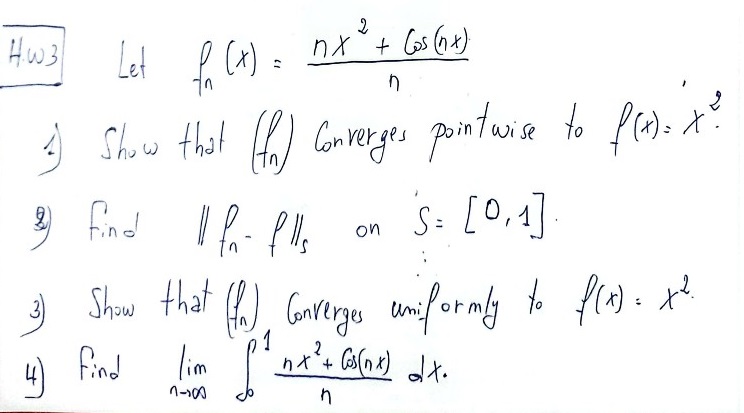 H.W3 Let fₙ(x) = (nx² + Cos(nx)) / n
1) Show that (fₙ) Converges pointwise to f(x) = x².
2) find ‖fₙ - f‖ₛ on S = [0,1].
3) Show that (fₙ) Converges uniformly to f(x) = x².
4) find lim n→∞ ∫₀¹ (nx² + Cos(nx)) / n dx.